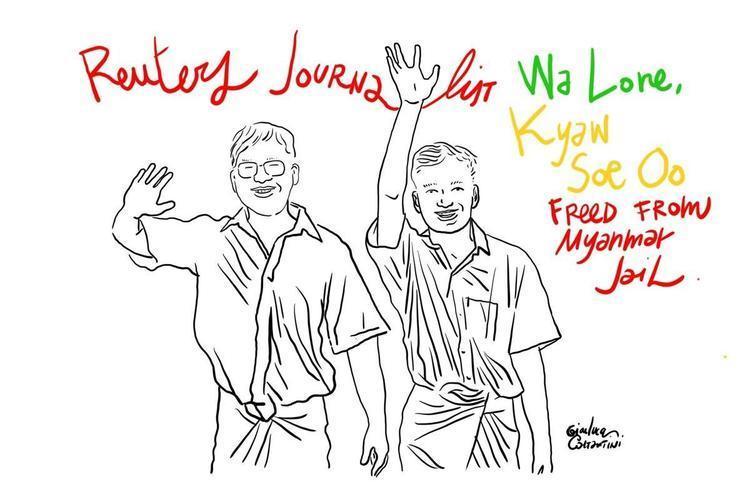 Reuters Journalist Wa Lone,
Kyaw
Soe Oo
Freed From
Myanmar
Jail.
Gianluca
Costantini